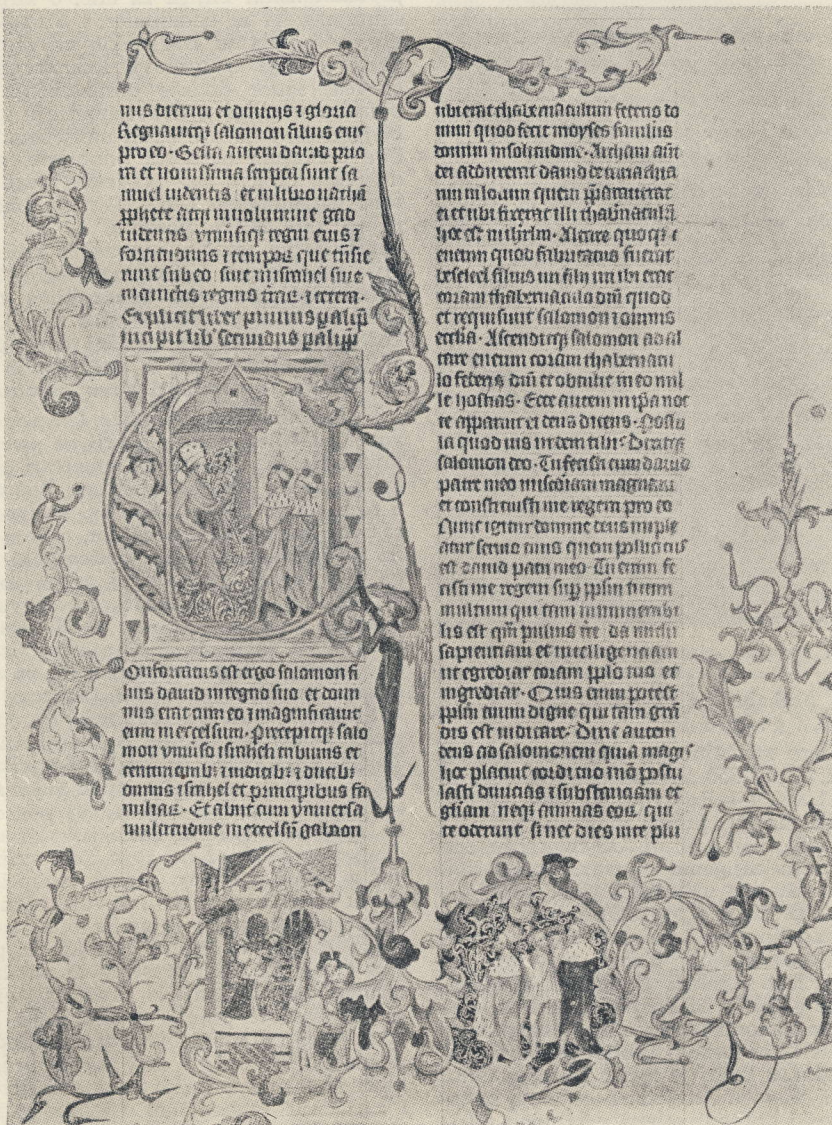 nus dierum et diuitiis ⁊ gloria
Regnauitqꝫ salomon filius eius
pro eo · Gesta autem dauid prio
ra et nouissima scripta sunt in sa
muel uidentis et in libro nathā
ꝓphete atqꝫ in uolumine gad
uidentis vniusiqꝫ regni eius ⁊
fortitudinis ⁊ temporū que trāsie
runt sub eo siue in israhel siue
in cunctis regnis trāꝝ · ⁊ cetera ·
Explicit liber primus ꝑalip̄
Incipit lib' secundus ꝑalip̄
Confortatus est ergo salomon fi
lius dauid in regno suo et domi
nus erat cum eo ⁊ magnificauit
eum in excelsum · Precepitqꝫ salo
mon vniūso israheli tribunis et
centurionibꝫ ⁊ iudicibꝫ ⁊ ducibꝫ
omnis israhel et principibus fa
miliaꝝ · Et abiit cum vniuersa
multitudine in excelsū gabaon
ubi erat thabernaculum federis do
mini quod fecit moyses famulus
domini in solitudine · Archam aūt
dei adduxerat dauid de cariathia
rim in locum quem p̄parauerat
ei et ubi fixerat illi thab'naculū
hoc est in ihrlm · Altare quoqꝫ
eneum quod fabricatus fuerat
beseleel filius uri filii ur ibi erat
coram thabernaculo dn̄i quod
et requisiuit salomon ⁊ omnis
ecclia · Ascenditqꝫ salomon ad al
tare eneum coram thabernacu
lo federis dn̄i et obtulit in eo mil
le hostias · Ecce autem in ip̄a noc
te apparuit ei deus dicens · Postu
la quod uis ut dem tibi · Dixitqꝫ
salomon deo · Tu fecisti cum dauid
patre meo misc̄diam magnam
et constituisti me regem pro eo
Nunc igitur domine deus imple
atur sermo tuus quem pollicitus
est dauid patri meo · Tu enim fe
cisti me regem sup̄ pplm̄ tuum
multum qui tam innumerabi
lis est qm̄ puluis tr̄e da michi
sapientiam et intelligenciam
ut egrediar coram pplo tuo et
ingrediar · Quis enim potest
pplm̄ tuum digne qui tam grā
dis est iudicare · Dixit autem
deus ad salomonem quia magis
hoc placuit cordi tuo ⁊ nō postu
lasti diuicias ⁊ substanciam et
gl̄iam neqꝫ animas eoꝝ qui
te oderunt si nec dies uite plu